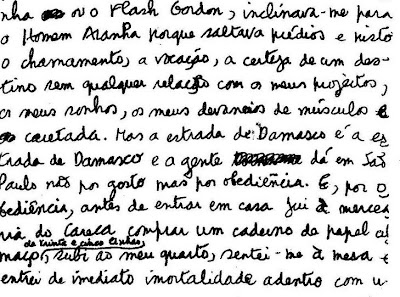 nha ou o Flash Gordon, inclinava-me para
o Homem Aranha porque saltava prédios e nisto
o chamamento, a vocação, a certeza de um des-
tino sem qualquer relação com os meus projectos,
os meus sonhos, os meus devaneios de músculos e
caretada. Mas a estrada de Damasco é a es
trada de Damasco e a gente dá em São
Paulo não por gosto mas por obediência. E, por o
bediência, antes de entrar em casa fui à mercea
ria do Careca comprar um caderno de papel al
de trinta e cinco linhas,
maço, subi ao meu quarto, sentei-me à mesa e
entrei de imediato imortalidade adentro com u